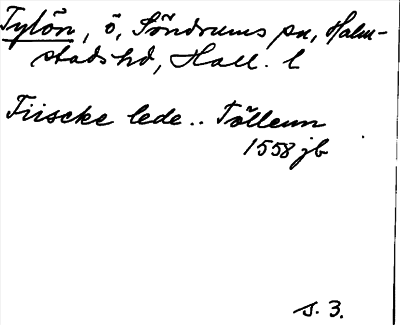 Tylön, ö, Söndrums sn, Halm-
stads hd, Hall. l
Fiiscke lede.. Töllenn
1558 jb
s. 3.